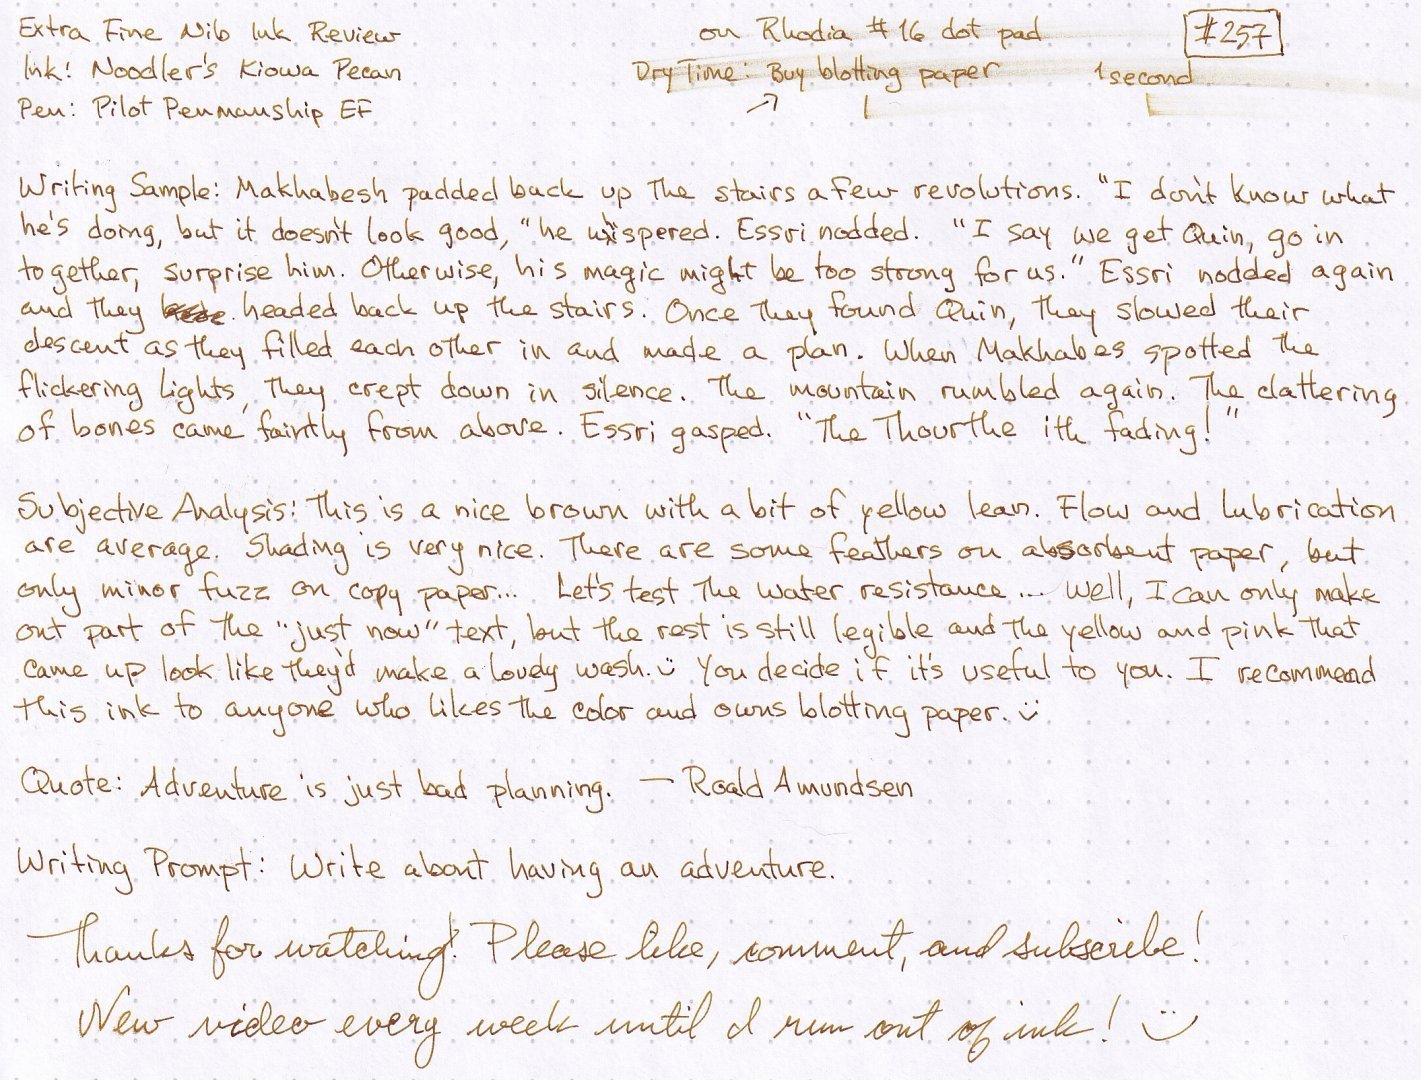 Extra Fine Nib Ink Review on Rhodia #16 dot pad #257
Ink: Noodler's Kiowa Pecan Dry Time: Buy blotting paper 1 second
Pen: Pilot Penmanship EF
Writing Sample: Makhabesh padded back up the stairs a few revolutions. "I don't know what
he's doing, but it doesn't look good," he whispered. Essri nodded. "I say we get Quin, go in
together, surprise him. Otherwise, his magic might be too strong for us." Essri nodded again
and they headed back up the stairs. Once they found Quin, they slowed their
descent as they filled each other in and made a plan. When Makhabes spotted the
flickering lights, they crept down in silence. The mountain rumbled again. The clattering
of bones came faintly from above. Essri gasped. "The Thourthe ith fading!"
Subjective Analysis: This is a nice brown with a bit of yellow lean. Flow and lubrication
are average. Shading is very nice. There are some feathers on absorbent paper, but
only minor fuzz on copy paper... Let's test the water resistance... well, I can only make
out part of the "just now" text, but the rest is still legible and the yellow and pink that
came up look like they'd make a lovely wash. :) You decide if it's useful to you. I recommend
this ink to anyone who likes the color and owns blotting paper. :)
Quote: Adventure is just bad planning. — Roald Amundsen
Writing Prompt: Write about having an adventure.
Thanks for watching! Please like, comment, and subscribe!
New video every week until I run out of ink! :)